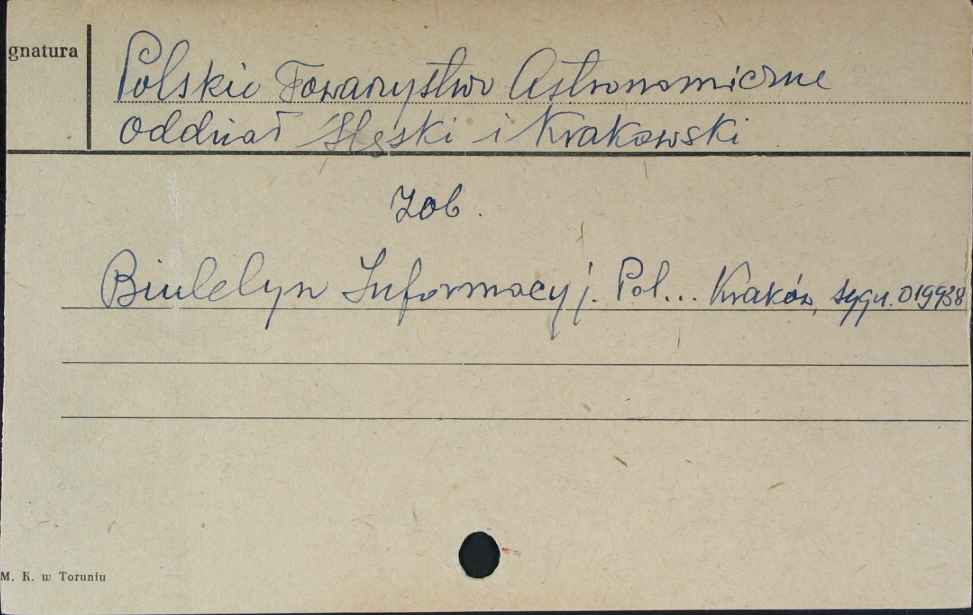 gnatura
Polskie Towarzystwo Astronomiczne
Oddział Śląski i Krakowski
Zob.
Biuletyn Informacyj. Pol... Kraków, sygn. 019938
M. K. w Toruniu